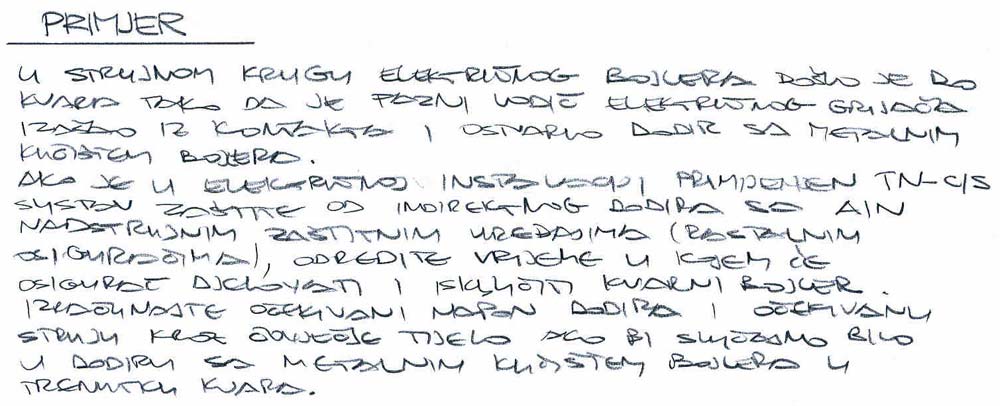 PRIMJER
U STRUJNOM KRUGU ELEKTRIČNOG BOJLERA DOŠLO JE DO
KVARA TAKO DA JE FAZNI VODIČ ELEKTRIČNOG GRIJAČA
IZAŠAO IZ KONTAKTA I OSTVARIO DODIR SA METALNIM
KUĆIŠTEM BOJLERA.
AKO JE U ELEKTRIČNOJ INSTALACIJI PRIMIJENJEN TN-C/S
SUSTAV ZAŠTITE OD INDIREKTNOG DODIRA SA
NADSTRUJNIM ZAŠTITNIM UREĐAJIMA (RASTALNIM
OSIGURAČIMA), ODREDITE VRIJEME U KOJEM ĆE
OSIGURAČ DJELOVATI I ISKLJUČITI KVARNI BOJLER.
IZRAČUNAJTE OČEKIVANI NAPON DODIRA I OČEKIVANU
STRUJU KROZ ČOVJEČJE TIJELO AKO BI SLUČAJNO BILO
U DODIRU SA METALNIM KUĆIŠTEM BOJLERA U
TRENUTKU KVARA.